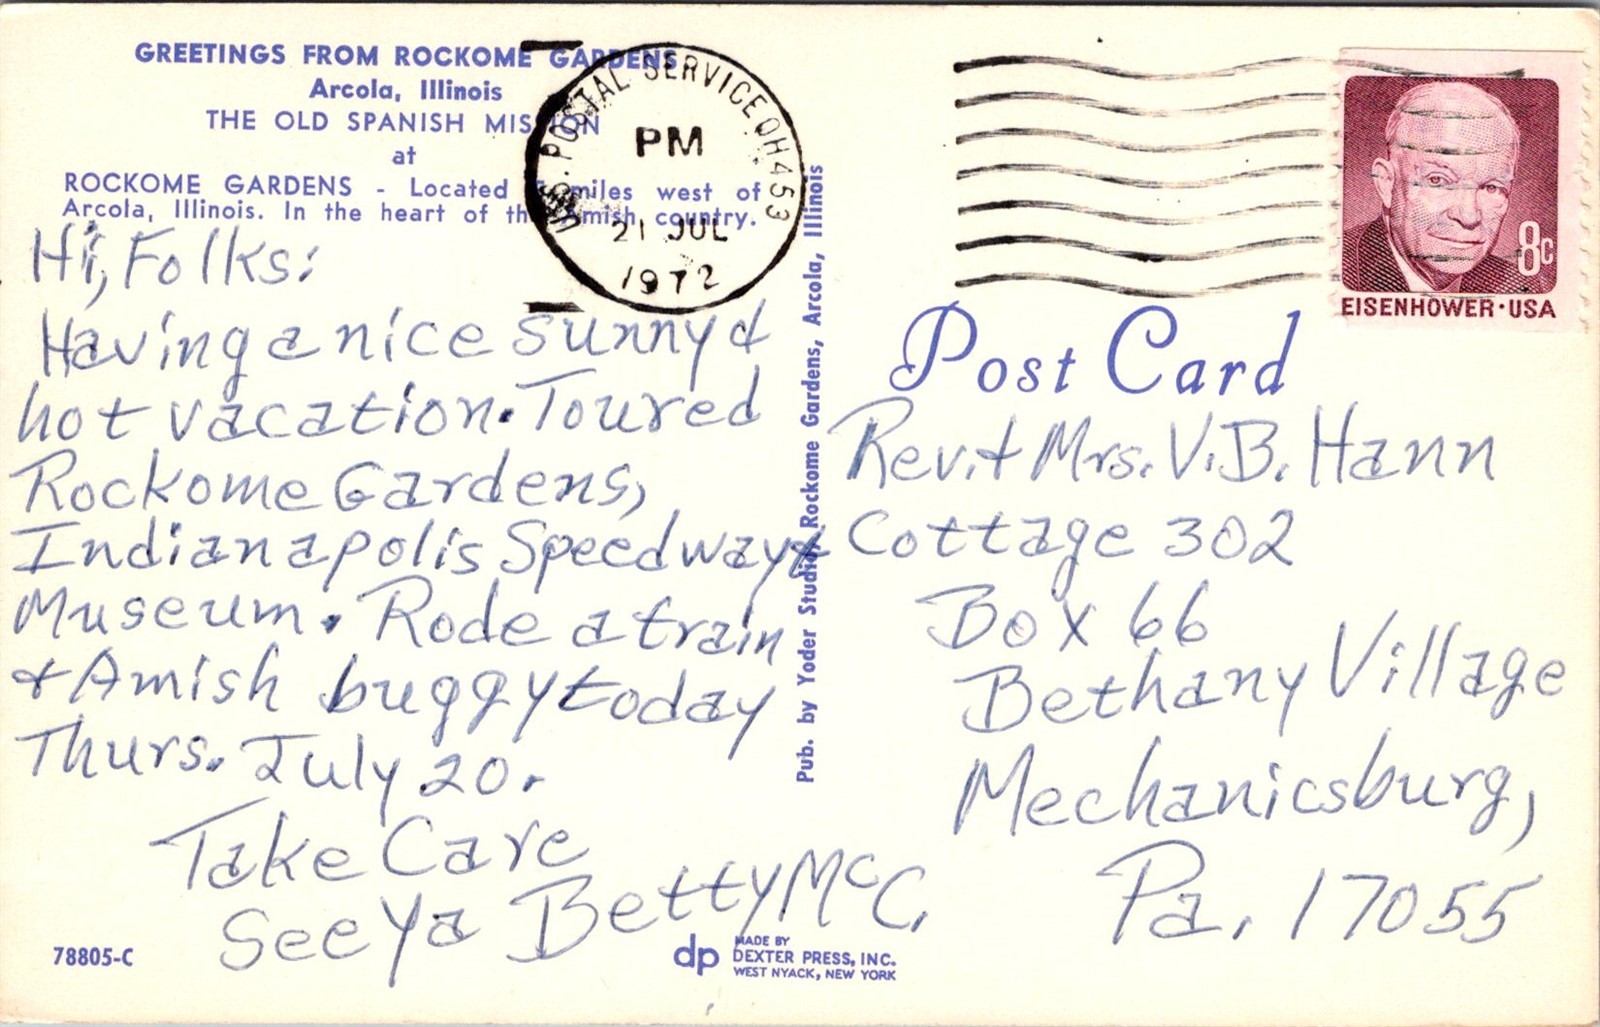 GREETINGS FROM ROCKOME GARDENS
Arcola, Illinois
THE OLD SPANISH MISSION
at
ROCKOME GARDENS - Located miles west of
Arcola, Illinois. In the heart of the Amish country.
U.S. POSTAL SERVICE OH 453
PM
21 JUL
1972
8c
EISENHOWER · USA
Hi, Folks:
Having a nice sunny &
hot vacation. Toured
Rockome Gardens,
Indianapolis Speedway &
Museum. Rode a train
& Amish buggy today
Thurs. July 20.
Take Care
See Ya Betty McC.
Pub. by Yoder Studio, Rockome Gardens, Arcola, Illinois
Post Card
Rev. & Mrs. V. B. Hann
Cottage 302
Box 66
Bethany Village
Mechanicsburg,
Pa. 17055
78805-C
dp
MADE BY
DEXTER PRESS, INC.
WEST NYACK, NEW YORK